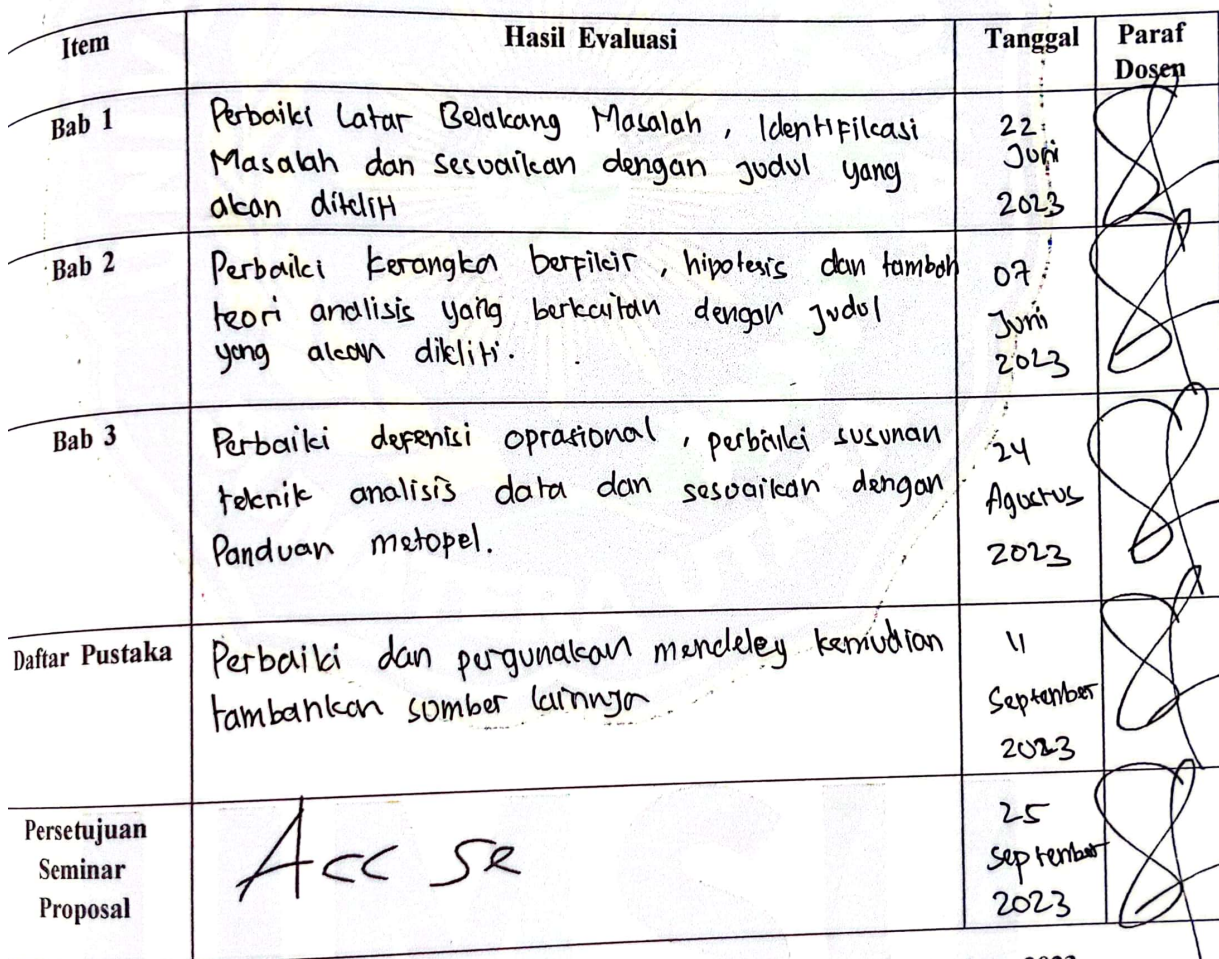 Item Hasil Evaluasi Tanggal Paraf
Dosen
Bab 1 Perbaiki Latar Belakang Masalah , Identifikasi 22
Masalah dan sesuaikan dengan judul yang Juni
akan diteliti 2023
Bab 2 Perbaiki kerangka berpikir , hipotesis dan tambah 07
teori analisis yang berkaitan dengan judul Juni
yang akan diteliti. 2023
Bab 3 Perbaiki defenisi oprasional , perbaiki susunan 24
teknik analisis data dan sesuaikan dengan Agustus
Panduan metopel. 2023
Daftar Pustaka Perbaiki dan pergunakan mendeley kemudian 11
tambahkan sumber lainnya September
2023
Persetujuan 25
Seminar Acc September
Proposal 2023